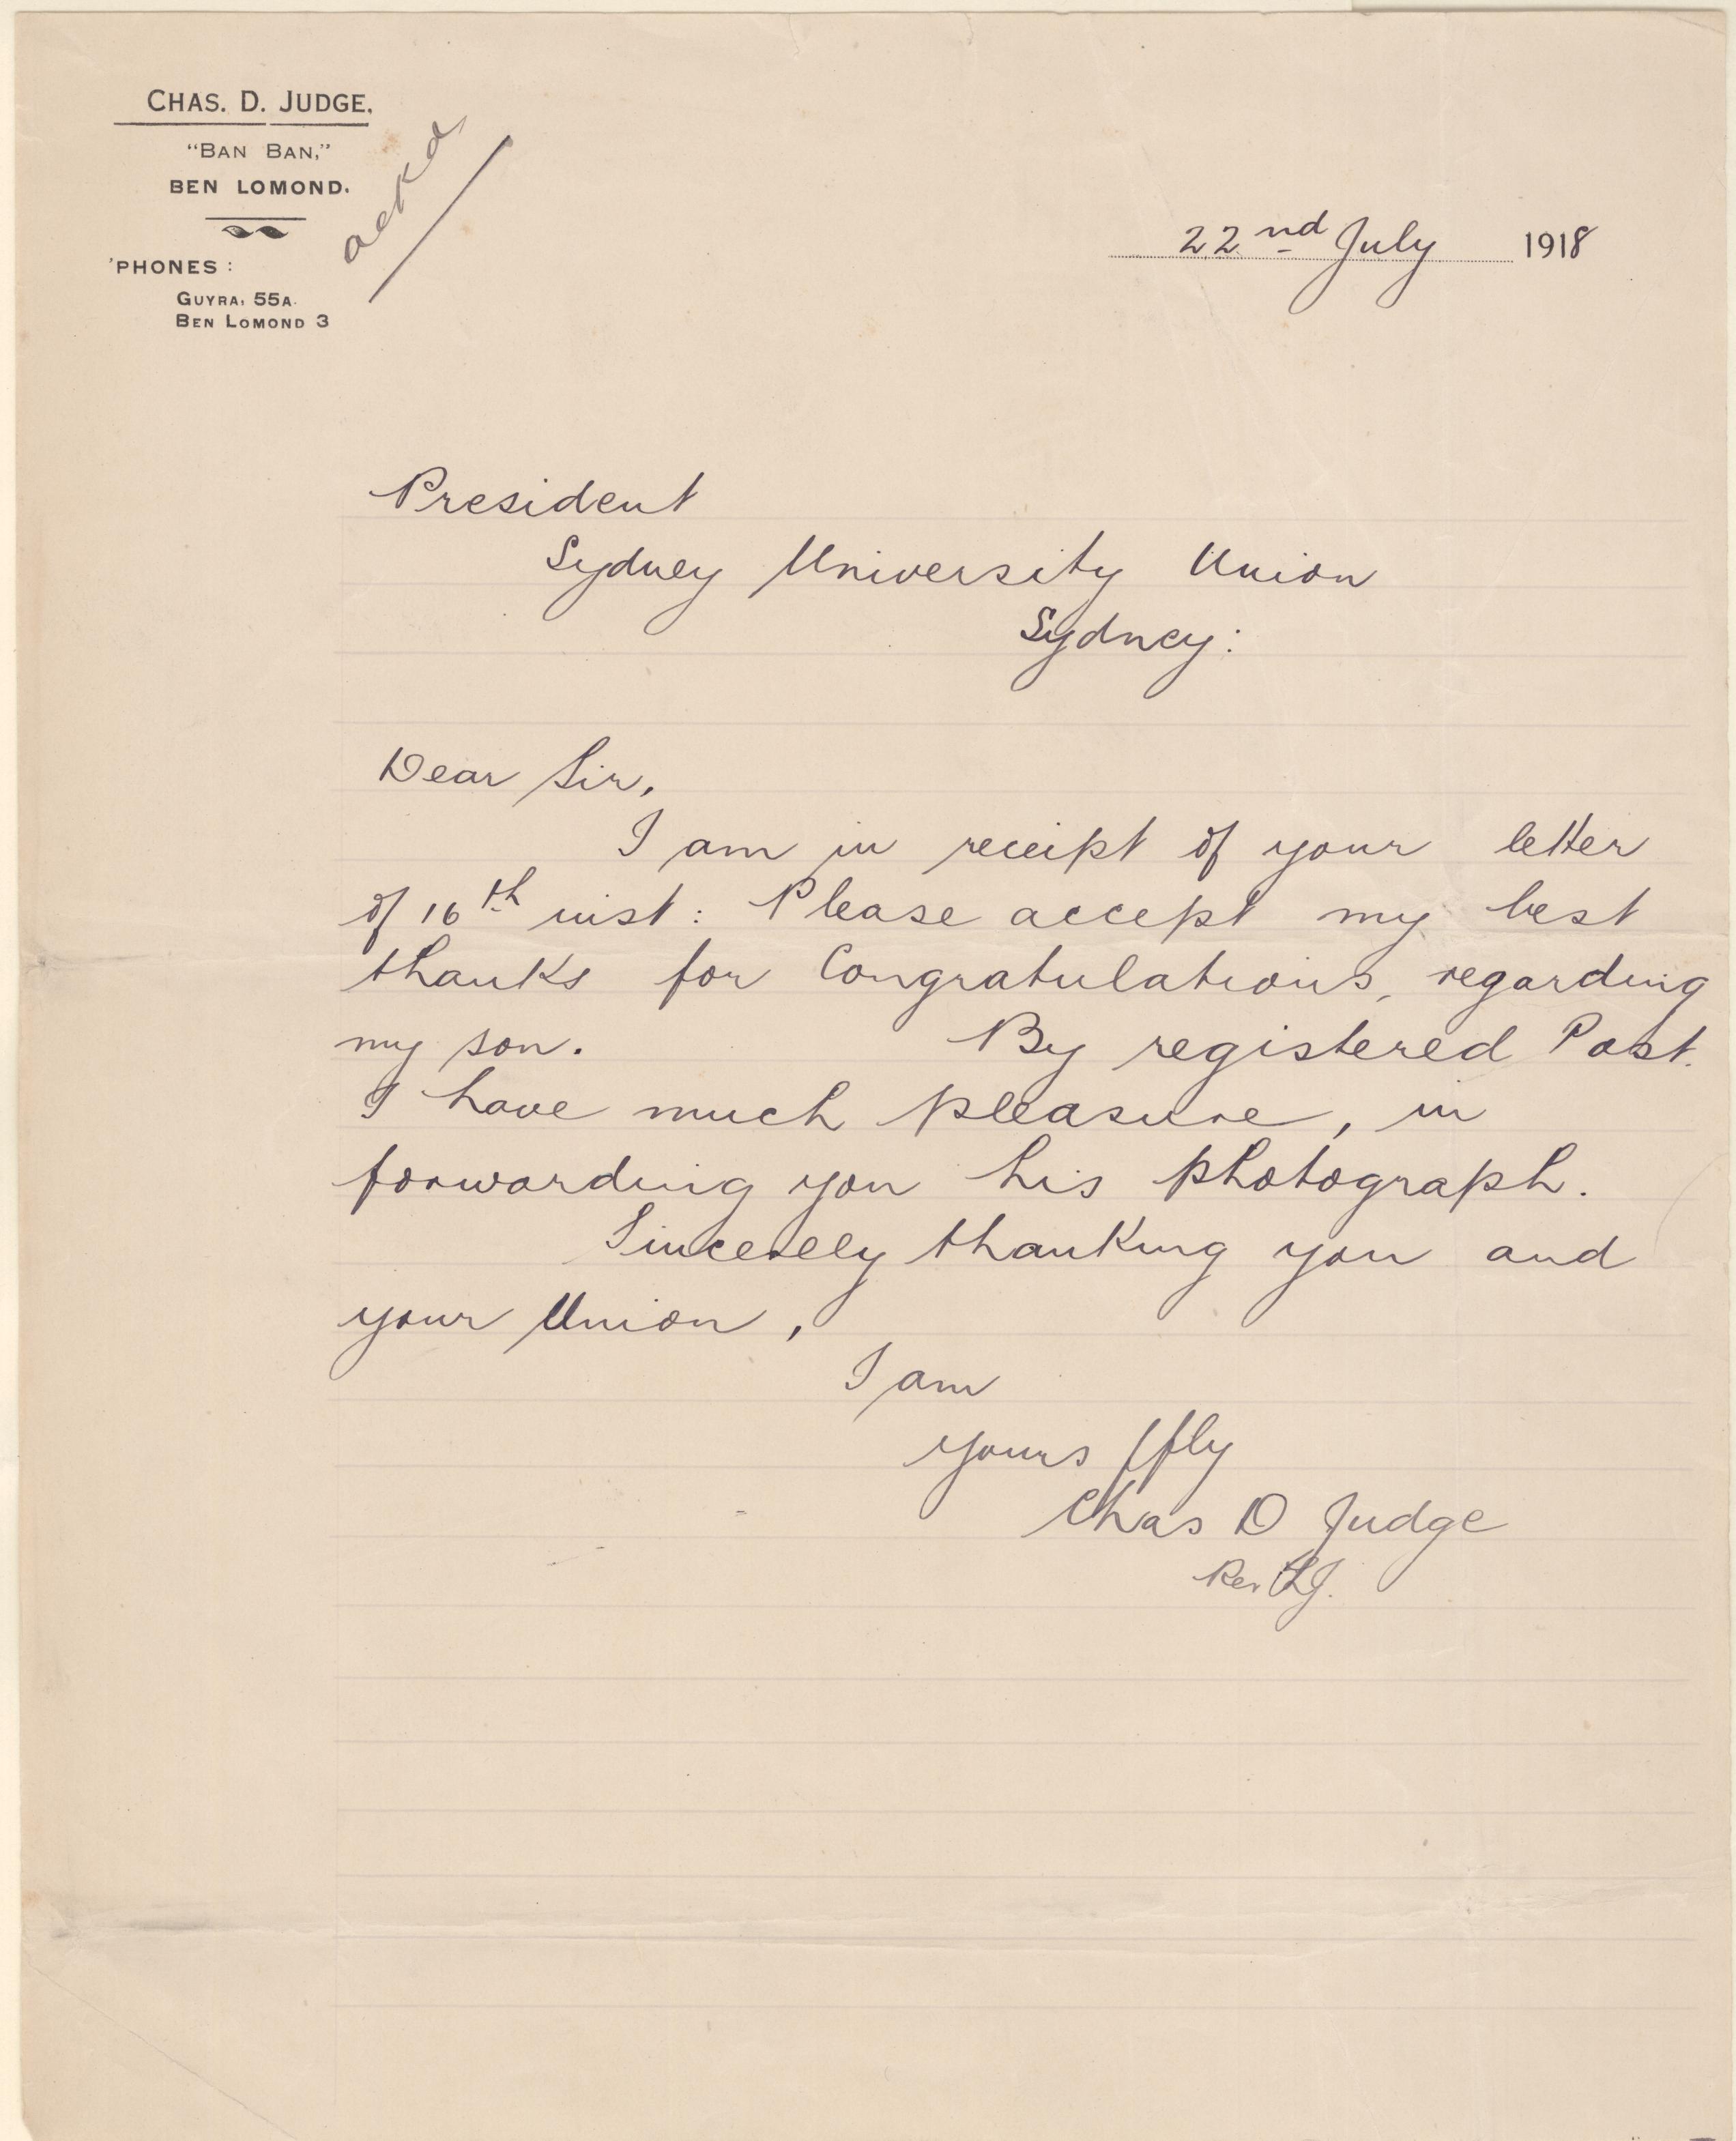 CHAS. D. JUDGE.
"BAN BAN,"
BEN LOMOND.
'PHONES:
GUYRA, 55A.
BEN LOMOND 3
ackd
22nd July 1918
President
Sydney University Union
Sydney:
Dear Sir,
I am in receipt of your letter
of 16th inst: Please accept my best
thanks for Congratulations, regarding
my son. By registered Post.
I have much pleasure, in
forwarding you his photograph.
Sincerely thanking you and
your Union,
I am
yours ffly
Chas D Judge
Per